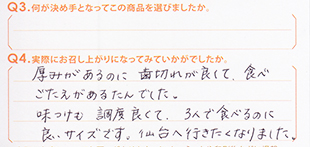 Q3.何が決め手となってこの商品を選びましたか。
Q4.実際にお召し上がりになってみていかがでしたか。
厚みがあるのに 歯切れが良くて、食べ
ごたえがあるたんでした。
味つけも 調度良くて、3人で食べるのに
良いサイズです。仙台へ行きたくなりました。